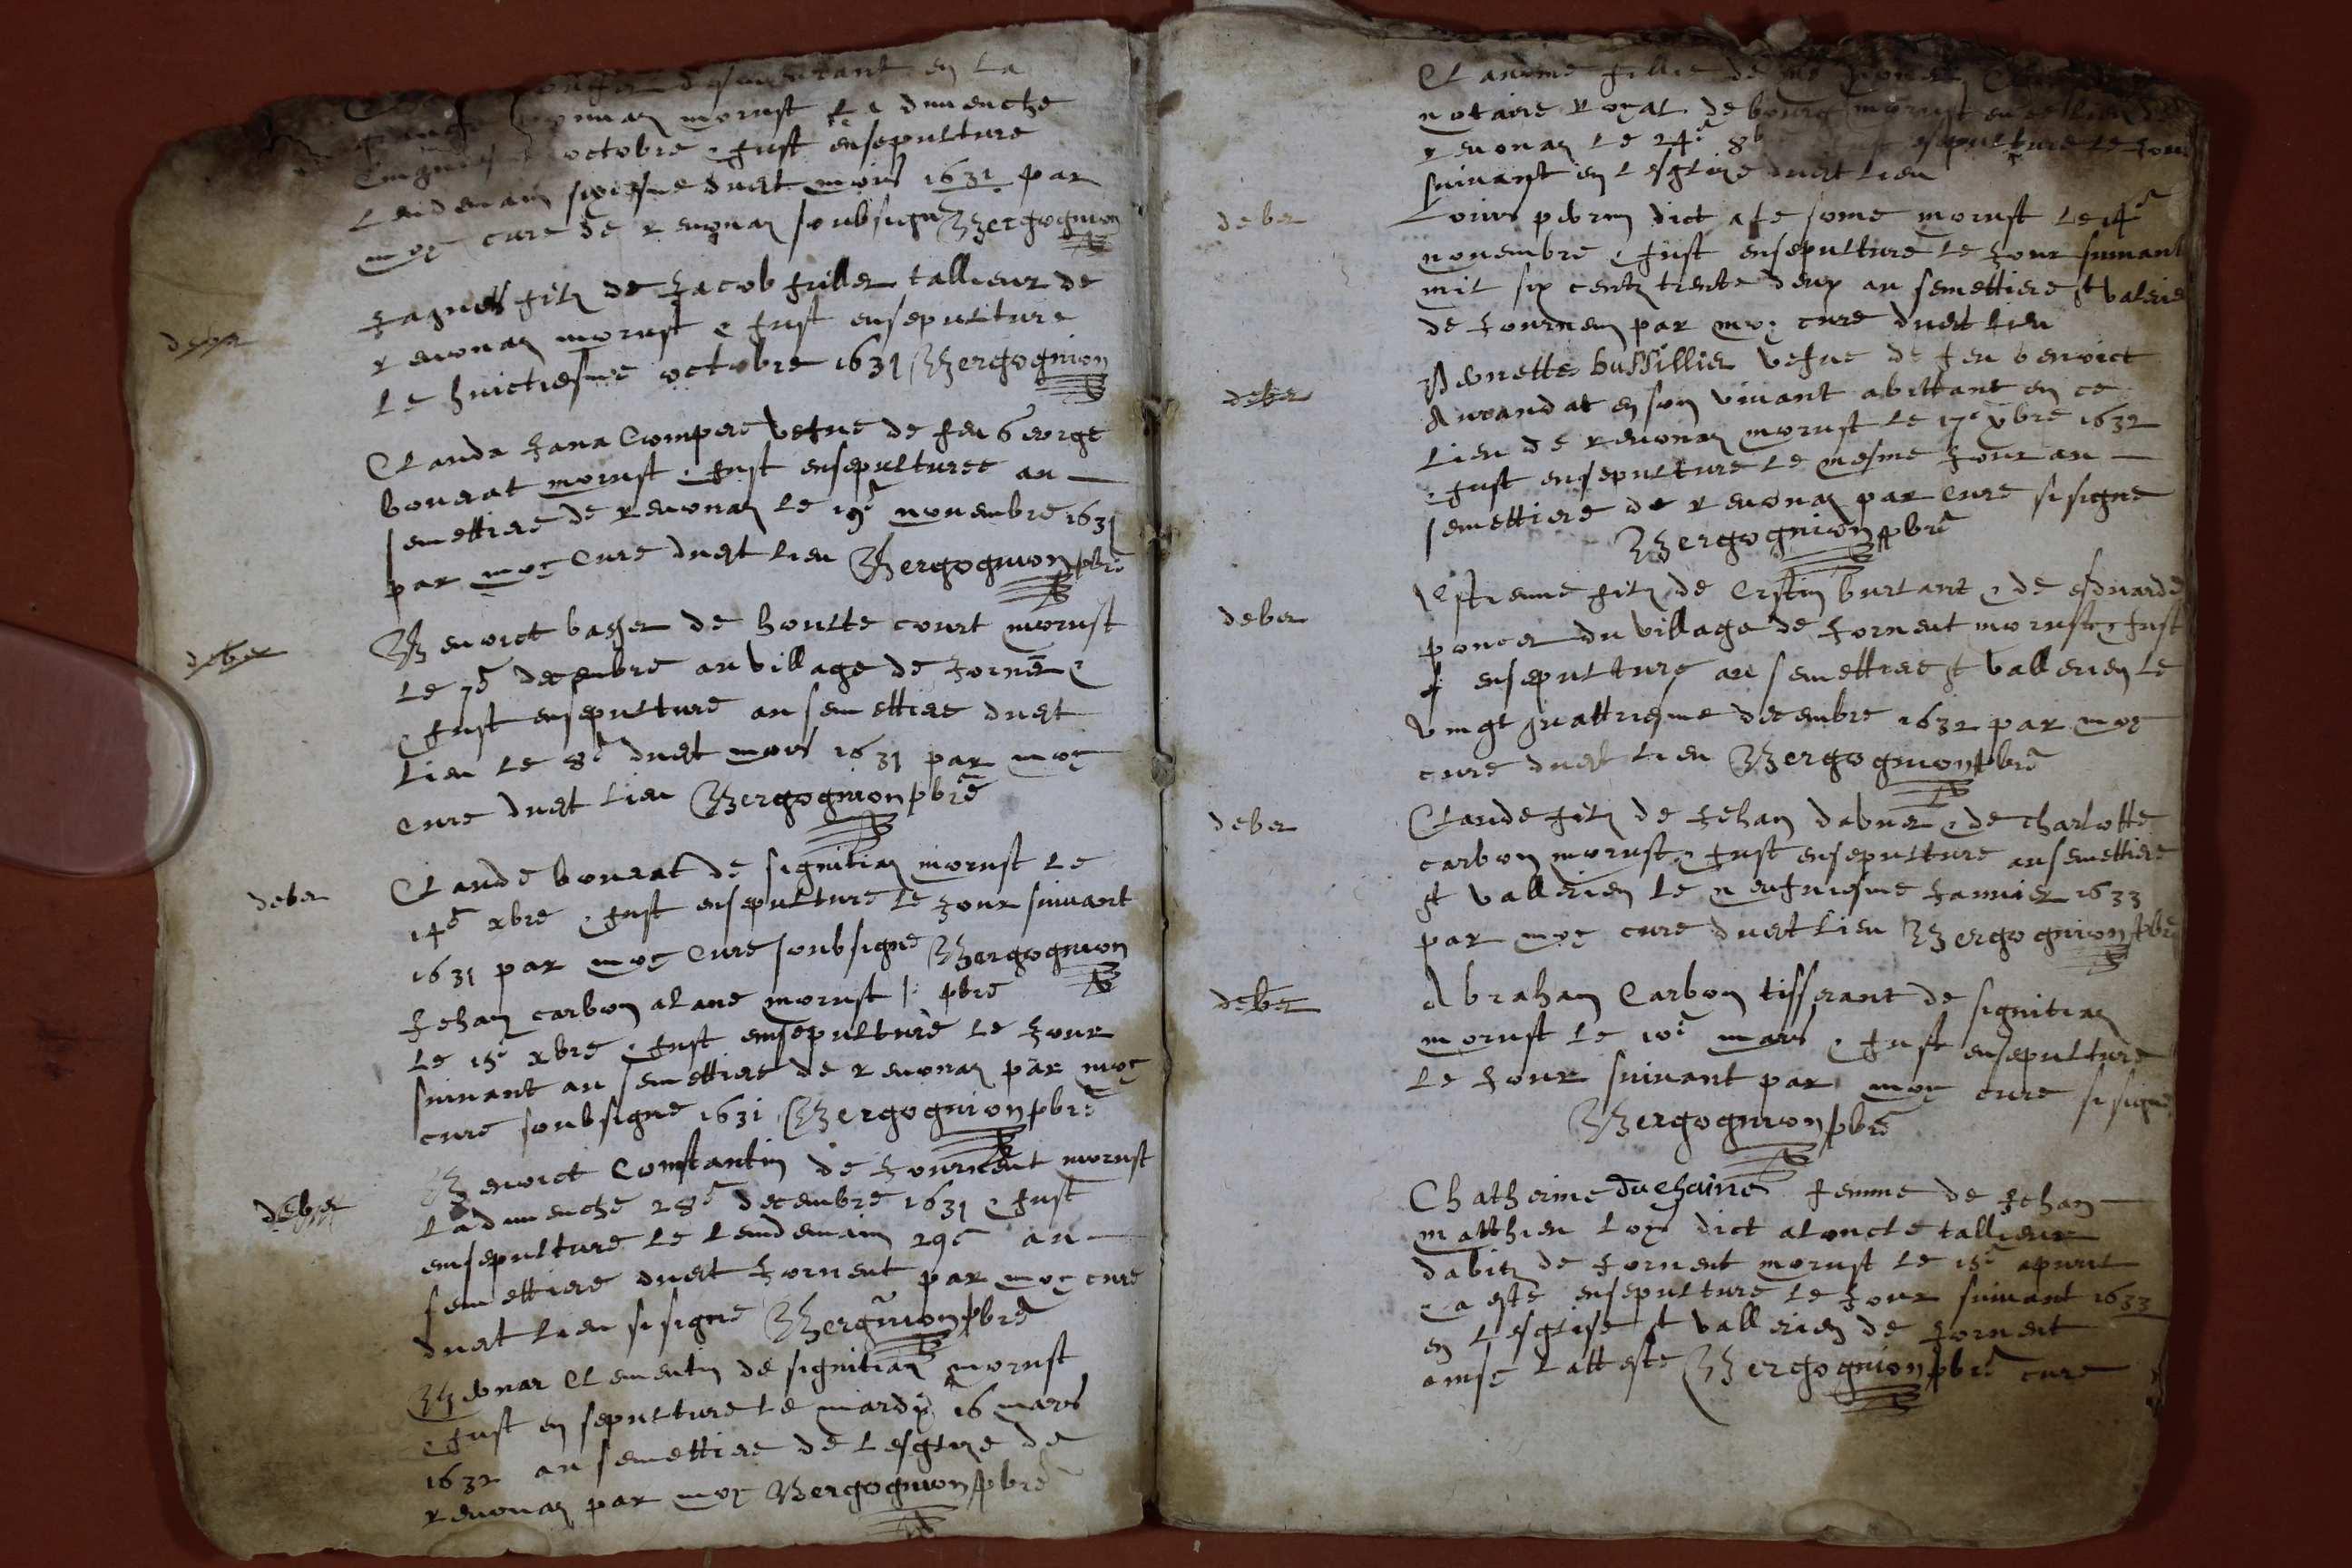 demeurant en la
morust le dimenche
octobre & fust ensepulture
lendemain sixiesme dudt mois 1631 par
moy cure de revonaz soubsigne Bergognion
deber
Jaques filz de Jacob filler tallieur de
revonaz morust & fust ensepulture
le huictiesme octobre 1631 Bergognion
Clauda Jana Compere vefue de feu George
bouvat morust & fust ensepulturee au
semettiere de revonaz le 19e novembre 1631
par moy Cure dudt lieu Bergognion pbre
deber
Benoict de houlte court morust
le 7e decembre au village de Jornen &
fust ensepulture au semettiere dudt
lieu le 8e dudt mois 1631 par moy
cure dudt lieu Bergognion pbre
deber
Claude bouvat de signitiaz morust le
14e xbre & fust ensepulture le jour suivant
1631 par moy Cure soubsigne Bergognion
pbre
Jehan carbon morust
le 15e xbre & fust ensepulture le jour
suivant au semettiere de revonaz par moy
cure soubsigne 1631 Bergognion pbre
deber
Benoict Constantin de Journent morust
la dimenche 28e decembre 1631 & fust
ensepulture le lendemain 29e au
semettiere dudt Jornent par moy cure
dudt lieu sisigne Bergnion pbre
Clementin de signitiaz morust
& fust en sepulture le mardy 16 mars
1632 au semettiere de lesglize de
revonaz par moy Bergognion pbre
Claudine fillie de
notaire royal de bourg morust en ce lieu de
revonaz le 24e 8b ensepulture le jour
suivant en lesglize dudt lieu
deber
Louis perrin dict morust le 14e
novembre & fust ensepulture le jour suivant
mil six centz trente deux au semettiere st valerie
de Journen par moy cure dudt lieu
deber
bussillier vefue de feu benoict
en son vivant abittant en ce
lieu de revonaz morust le 17e xbre 1632
& fust ensepulture le mesme jour au
semettiere de revonaz par cure sisigne
Bergognion pbre
deber
Estienne filz de Cristin burtant & de esduarde
poncer du village de Jornent morust & fust
ensepulture au semettiere st vallerien le
vingt quattriesme decembre 1632 par moy
cure dudt lieu Bergognion pbre
deber
Claude filz de Jehan & de charlotte
carbon morust & fust ensepulture au semettiere
st vallerien le neufuiesme Jannier 1633
par moy cure dudt lieu Bergognion pbre
deber
Abraham Carbon tisserant de signitiaz
morust le 10e mars & fust ensepulture
le jour suivant par moy cure sisigne
Bergognion pbre
Chatherine duchaine femme de Jehan
matthieu loys dict aloncle tallieur
dabitz de Jornent morust le 15e apvril
& a este ensepulture le jour suivant 1633
en lesglise st vallerien de Jornent
ainse latteste Bergognion pbre cure